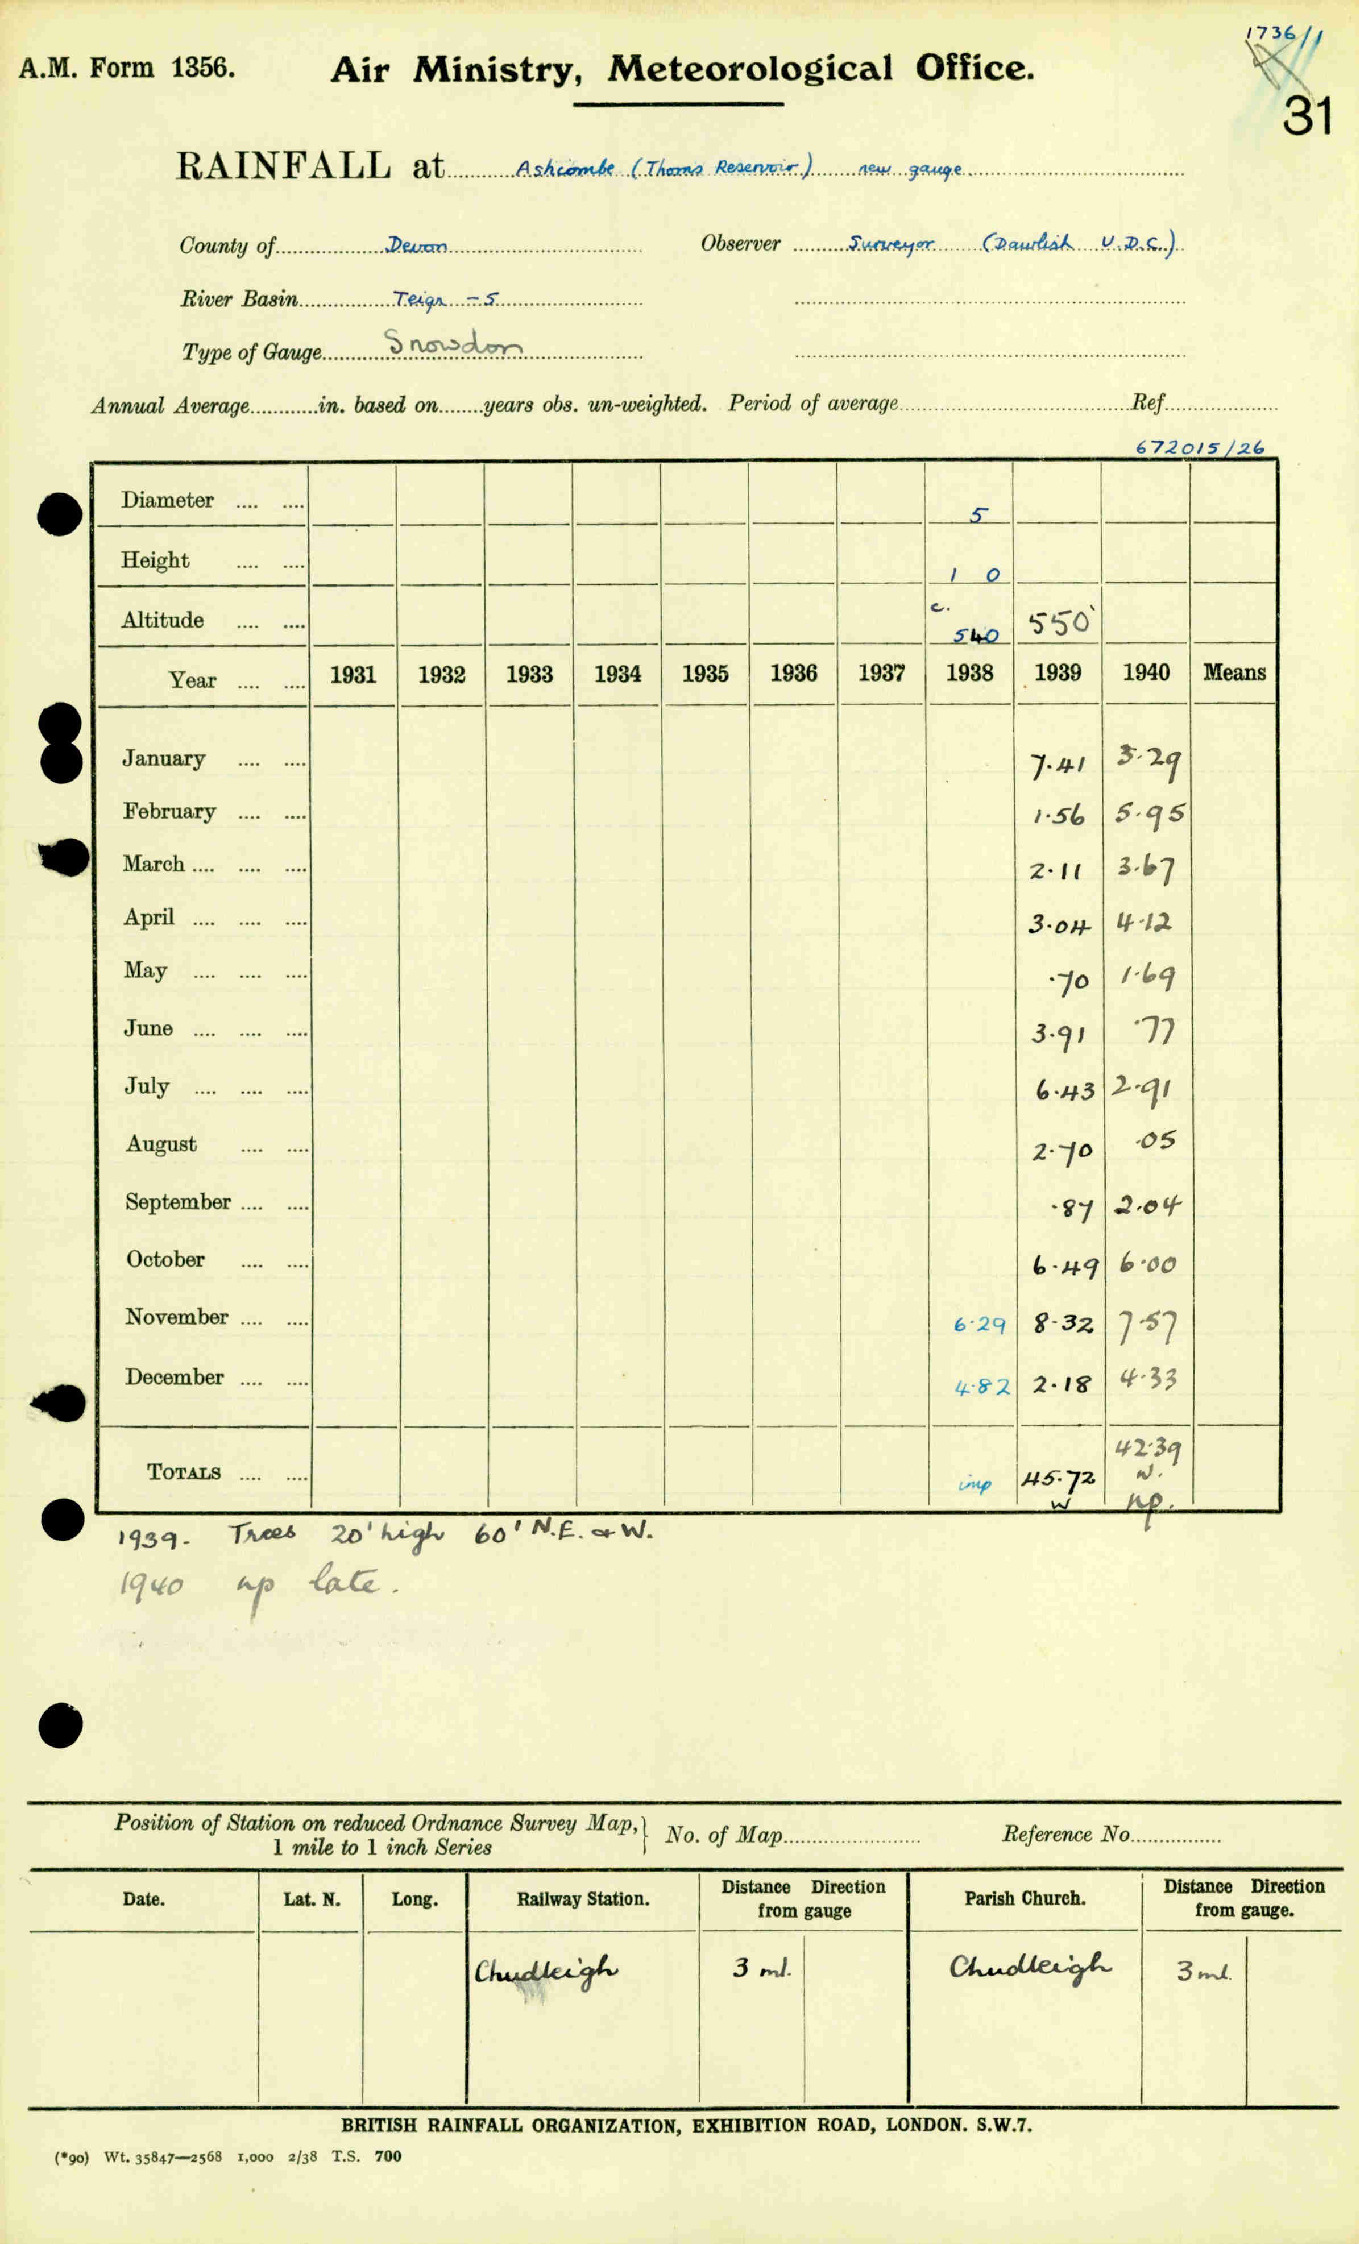 1736/1
A.M. Form 1356. Air Ministry, Meteorological Office.
31
RAINFALL at Ashcombe (Thorns Reservoir) new gauge
County of Devon Observer Surveyor (Dawlish U.D.C.)
River Basin Teign - 5
Type of Gauge Snowdon
Annual Average in. based on years obs. un-weighted. Period of average Ref.
672015/26
Diameter .... .... 5
Height .... .... 1 0
Altitude .... .... c. 540 550'
Year .... .... 1931 1932 1933 1934 1935 1936 1937 1938 1939 1940 Means
January .... .... 7.41 3.29
February .... .... 1.56 5.95
March .... .... .... 2.11 3.67
April .... .... .... 3.04 4.12
May .... .... .... .70 1.69
June .... .... .... 3.91 .77
July .... .... .... 6.43 2.91
August .... .... 2.70 .05
September .... .... .87 2.04
October .... .... 6.49 6.00
November .... .... 6.29 8.32 7.57
December .... .... 4.82 2.18 4.33
TOTALS .... .... imp 45.72 42.39
w w.
np.
1939. Trees 20' high 60' N.E. & W.
1940 np late.
Position of Station on reduced Ordnance Survey Map,} No. of Map Reference No.
1 mile to 1 inch Series
Date. Lat. N. Long. Railway Station. Distance Direction from gauge Parish Church. Distance Direction from gauge.
Chudleigh 3 ml. Chudleigh 3 ml.
BRITISH RAINFALL ORGANIZATION, EXHIBITION ROAD, LONDON. S.W.7.
(*90) Wt. 35847—2568 1,000 2/38 T.S. 700